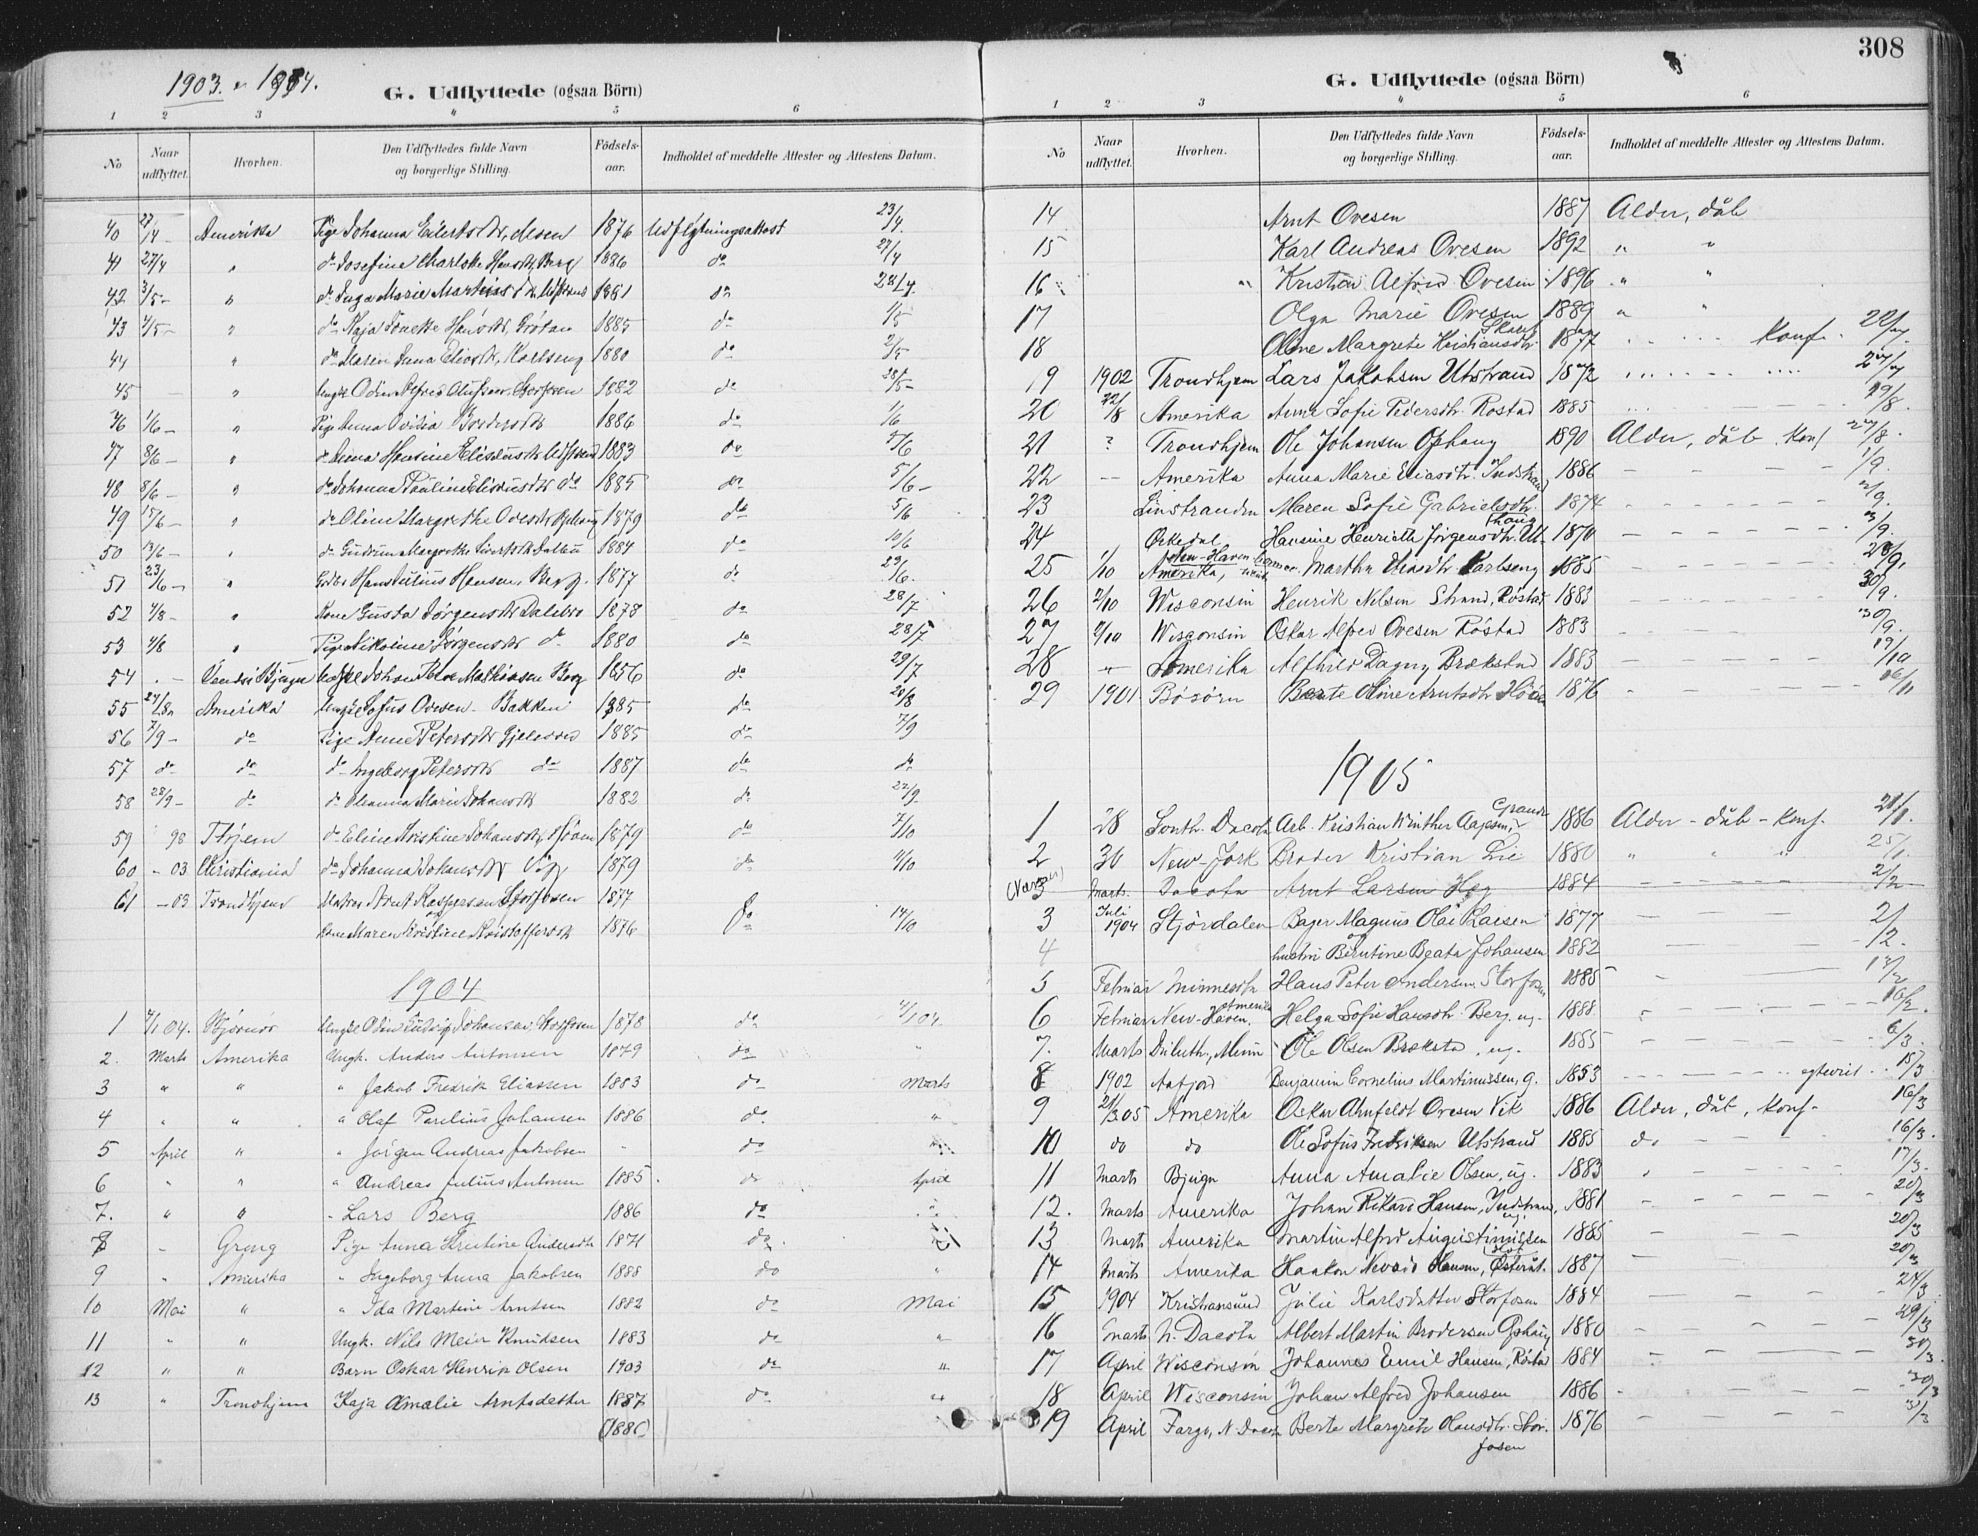 1903 1904.
G. Udflyttede (ogsaa Börn)
1 2 3 4 5 6
No Naar udflyttet. Hvorhen. Den Udflyttedes fulde Navn og borgerlige Stilling. Födsels-aar. Indholdet af meddelte Attester og Attestens Datum.
40 27/4 - Amerika Pige Johanna 1876 Udflytningsattest 23/4.
41 27/4 " do Josefine Hansdtr. Berg 1886 do 27/4
42 3/5- " do Inga Marie 1881 do 28/4.
43 4/5- " do Kaja Hansdtr. Grötan 1885 do 1/5
44 " do Maren Anna Eliasdtr. Karlseng 1880 do 2/5
45 " Ungk. Odin Alfred Olufsen Storfosen 1882 do 28/5-
46 1/6- " Pige Anna 1886 do 1/6
47 8/6- " do Anna 1883 do 5/6
48 8/6- " do Johanna Pauline do 1885 do 5/6-
49 15/6- " do Oline Margrethe Ovesdtr. Ophaug 1879 do 5/6
50 13/6- " do Gudrun Margrethe Dalbu 1884 do 10/6
51 23/6- " Hans Julius Hansen, Berg. 1877 do 29/6.
52 4/8- " Kone Gusta Jörgensdtr. Dalebo 1878 do 28/7
53 4/8 " Pige Nikoline Jörgensdtr. do 1880 do 28/7
54 - Bjugn Johan Mathiasen Berg 1856 do 29/7
55 24/8- Amerika Ungk. Sofus Ovesen. Bakken 1885 do 20/8
56 7/9- do Pige Anne Petersdtr. 1885 do 7/9
57 do do do Ingeborg Petersdtr. do 1887 do do
58 28/9- do do Oleanna Marie Johansdtr. 1882 do 22/9.
59 98 Thjem do Eline Kristine Johansdtr. 1879 do 7/10
60 - 03 Christiania do Johanna Johansdtr. 1879 do 9/10
61 - 03 Trondhjem Arnt Kaspersen Storfosen 1877 do 14/10
og
Kone Maren Kristine Kristoffersdtr. 1876
1904
1 7/1 04. Bjørnör Ungk. Odin Ludvig Johansen, Storfosen 1878 do 7/1 04.
2. Marts Amerika Ungk. Anders Antonsen 1879 do "
3 " " " Jakob Fredrik Eliassen 1883 do Marts
4 " " " Olaf Parelius Johansen 1886 do. "
5 April " " Jörgen Andreas Jakobsen - do "
6 " " " Andreas Julius Antonsen 1885. do April
7. " " - Lars Berg 1886 do "
8 - Grong Pige Anna Kristine Andersdtr 1871 do.
9 " Amerika " Ingeborg Anna Jakobsen 1888 do "
10 Mai " " Ida Martine Arntsen 1882 do Mai
11 " " Ungk. Nils Meier Knudsen 1883 do "
12 " " Barn Oskar Henrik Olsen 1903 do "
13 " Trondhjem Kaja Amalie Arntsdatter 1887 do "
(1886)
308
G. Udflyttede (ogsaa Börn)
1 2 3 4 5 6
No Naar udflyttet. Hvorhen. Den Udflyttedes fulde Navn og borgerlige Stilling. Födsels-aar. Indholdet af meddelte Attester og Attestens Datum.
14 Arnt Ovesen 1887 Alder, dåb
15 Karl Andreas Ovesen 1892 " "
16 " Kristian Alfred Ovesen 1896 " "
17 Olga Marie Ovesen 1889 " "
18 Oline Margrete Kristiansdtr. 1877 Konf. 22/7.
19 1902 Trondhjem Lars Jakobsen Utstrand 1872 27/7
20 22/8 Amerika Anna Sofie Pedersdtr. Rostad 1885 19/8.
21 ? Trondhjem Ole Johansen Ophaug 1890 Alder, dåb, Konf 27/8.
22 - Amerika Anna Marie Eliasdtr. Indstrand 1886 - - - - 1/9.
23 Maren Sofie Gabrielsdtr. 1874 2/9.
24 Orkedal Hansine Henriette Jörgensdtr. Ut-haug 1870 3/9.
25 1/10 Amerika, New-Haven Martha Eliasdtr. Karlseng 1885 28/9.
26 2/10 Wisconsin Henrik Nilsen Strand, Röstad 1883 30/9.
27 2/10 Wisgonsin Oskar Alfred Ovesen Röstad 1883 30/9.
28 " Amerika Alfhild Dagny Brækstad 1883 19/10
29 1901 Bösörn Berte Oline Arntsdtr. 1876 16/11
1905
1 28 South. Dacota Arb. Kristian Winther Aagesen, Grande 1886 Alder - dåb - Konf. 21/1.
2 30 New-Jork Broder Kristian Lie 1880 " " " 25/1.
(Varsen) 3 Marts Dacota Arnt Larsen Høg 1884 - 2/2
3 Juli 1904 Stjördalen Bager Magnus Olai Klaesen 1877 2/2.
og
4 hustru Berntine Beata Johansen 1882
5 Februar Minnesota Hans Peter Andersen, Storfosen 1885 13/2
6 Februar New-Haven, Amerika Helga Sofie Hansdtr. Berg. ug. 1888 16/2.
7. Marts Duluth, Minn Ole Olsen Brækstad, ug. 1885 6/3.
8 1902 Aafjord Benjamin Cornelius Martinussen, g. 1853 15/3
9 21/3 05 Amerika Oskar Arnfeldt Ovesen Vik 1886 Alder, dåb, Konf. 16/3
10 do do Ole Sofus Fredriksen Utstrand 1885 do 16/3.
11 Marts Bjugn Anna Amalie Olsen, ug. 1883 17/3.
12. Marts Amerika Johan Rikard Hansen, Indstrand, ug. 1881 20/3
13 Marts Amerika Martin Alfred Augustinussen 1885 20/3
14 Marts Amerika Haakon Nevald Hansen, Österåt. 1887 20/3
15 1904 Kristiansund Julie Karlsdatter Storfosen 1884 24/3
16 Marts N. Dacota Albert Martin Brodersen Ophaug 1880 29/3
17 April Wisconsin Johannes Emil Hansen, Röstad 1884 30/3.
18 April Wisconsin Johan Alfred Johansen 1886 30/3
19 April Fargo, N. Dacota Berte Margrete Hansdtr. Stor-fosen 1876 31/3